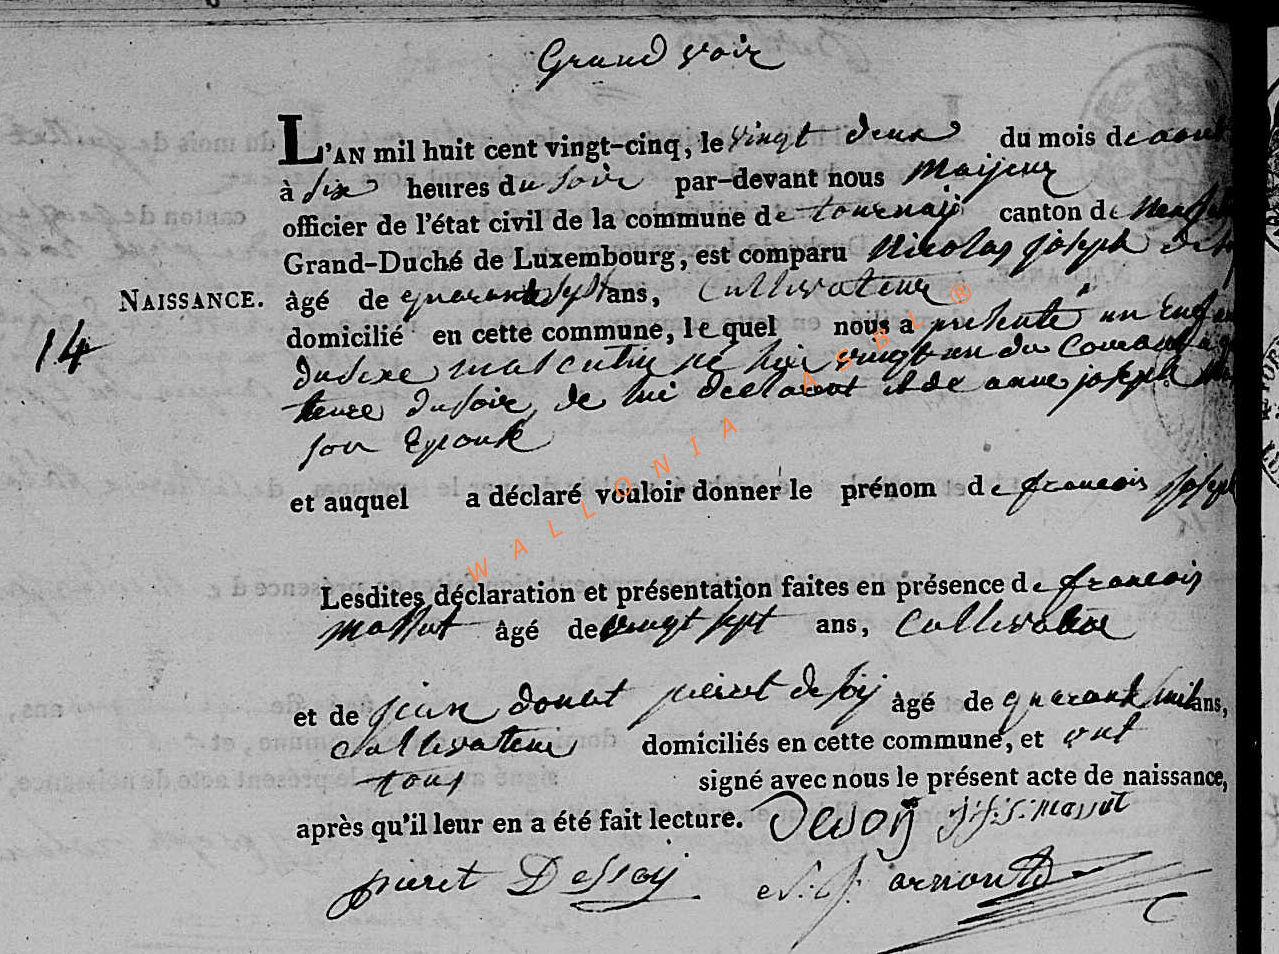 Grand voir
L'AN mil huit cent vingt-cinq, le vingt deux du mois de aout
à six heures du soir par-devant nous Maijeur
officier de l'état civil de la commune de tournaij canton de
Grand-Duché de Luxembourg, est comparu Nicolas joseph
NAISSANCE. âgé de quarante sept ans, Cultivateur
14 domicilié en cette commune, lequel nous a présenté un Enfan
du sexe masculin né hier vingt un du Courant a
heure du soir, de lui declarant et de anne joseph
son Epouse
et auquel a déclaré vouloir donner le prénom de francois joseph
WALLONIA ASBL ®
Lesdites déclaration et présentation faites en présence de francois
massut âgé de vingt sept ans, Cultivateur
et de jean donat pierret desoij âgé de quarante huit ans,
Cultivateur domiciliés en cette commune, et ont
tous signé avec nous le présent acte de naissance,
après qu'il leur en a été fait lecture. Desoij j: f: s: massut
pieret Dessoij arnould